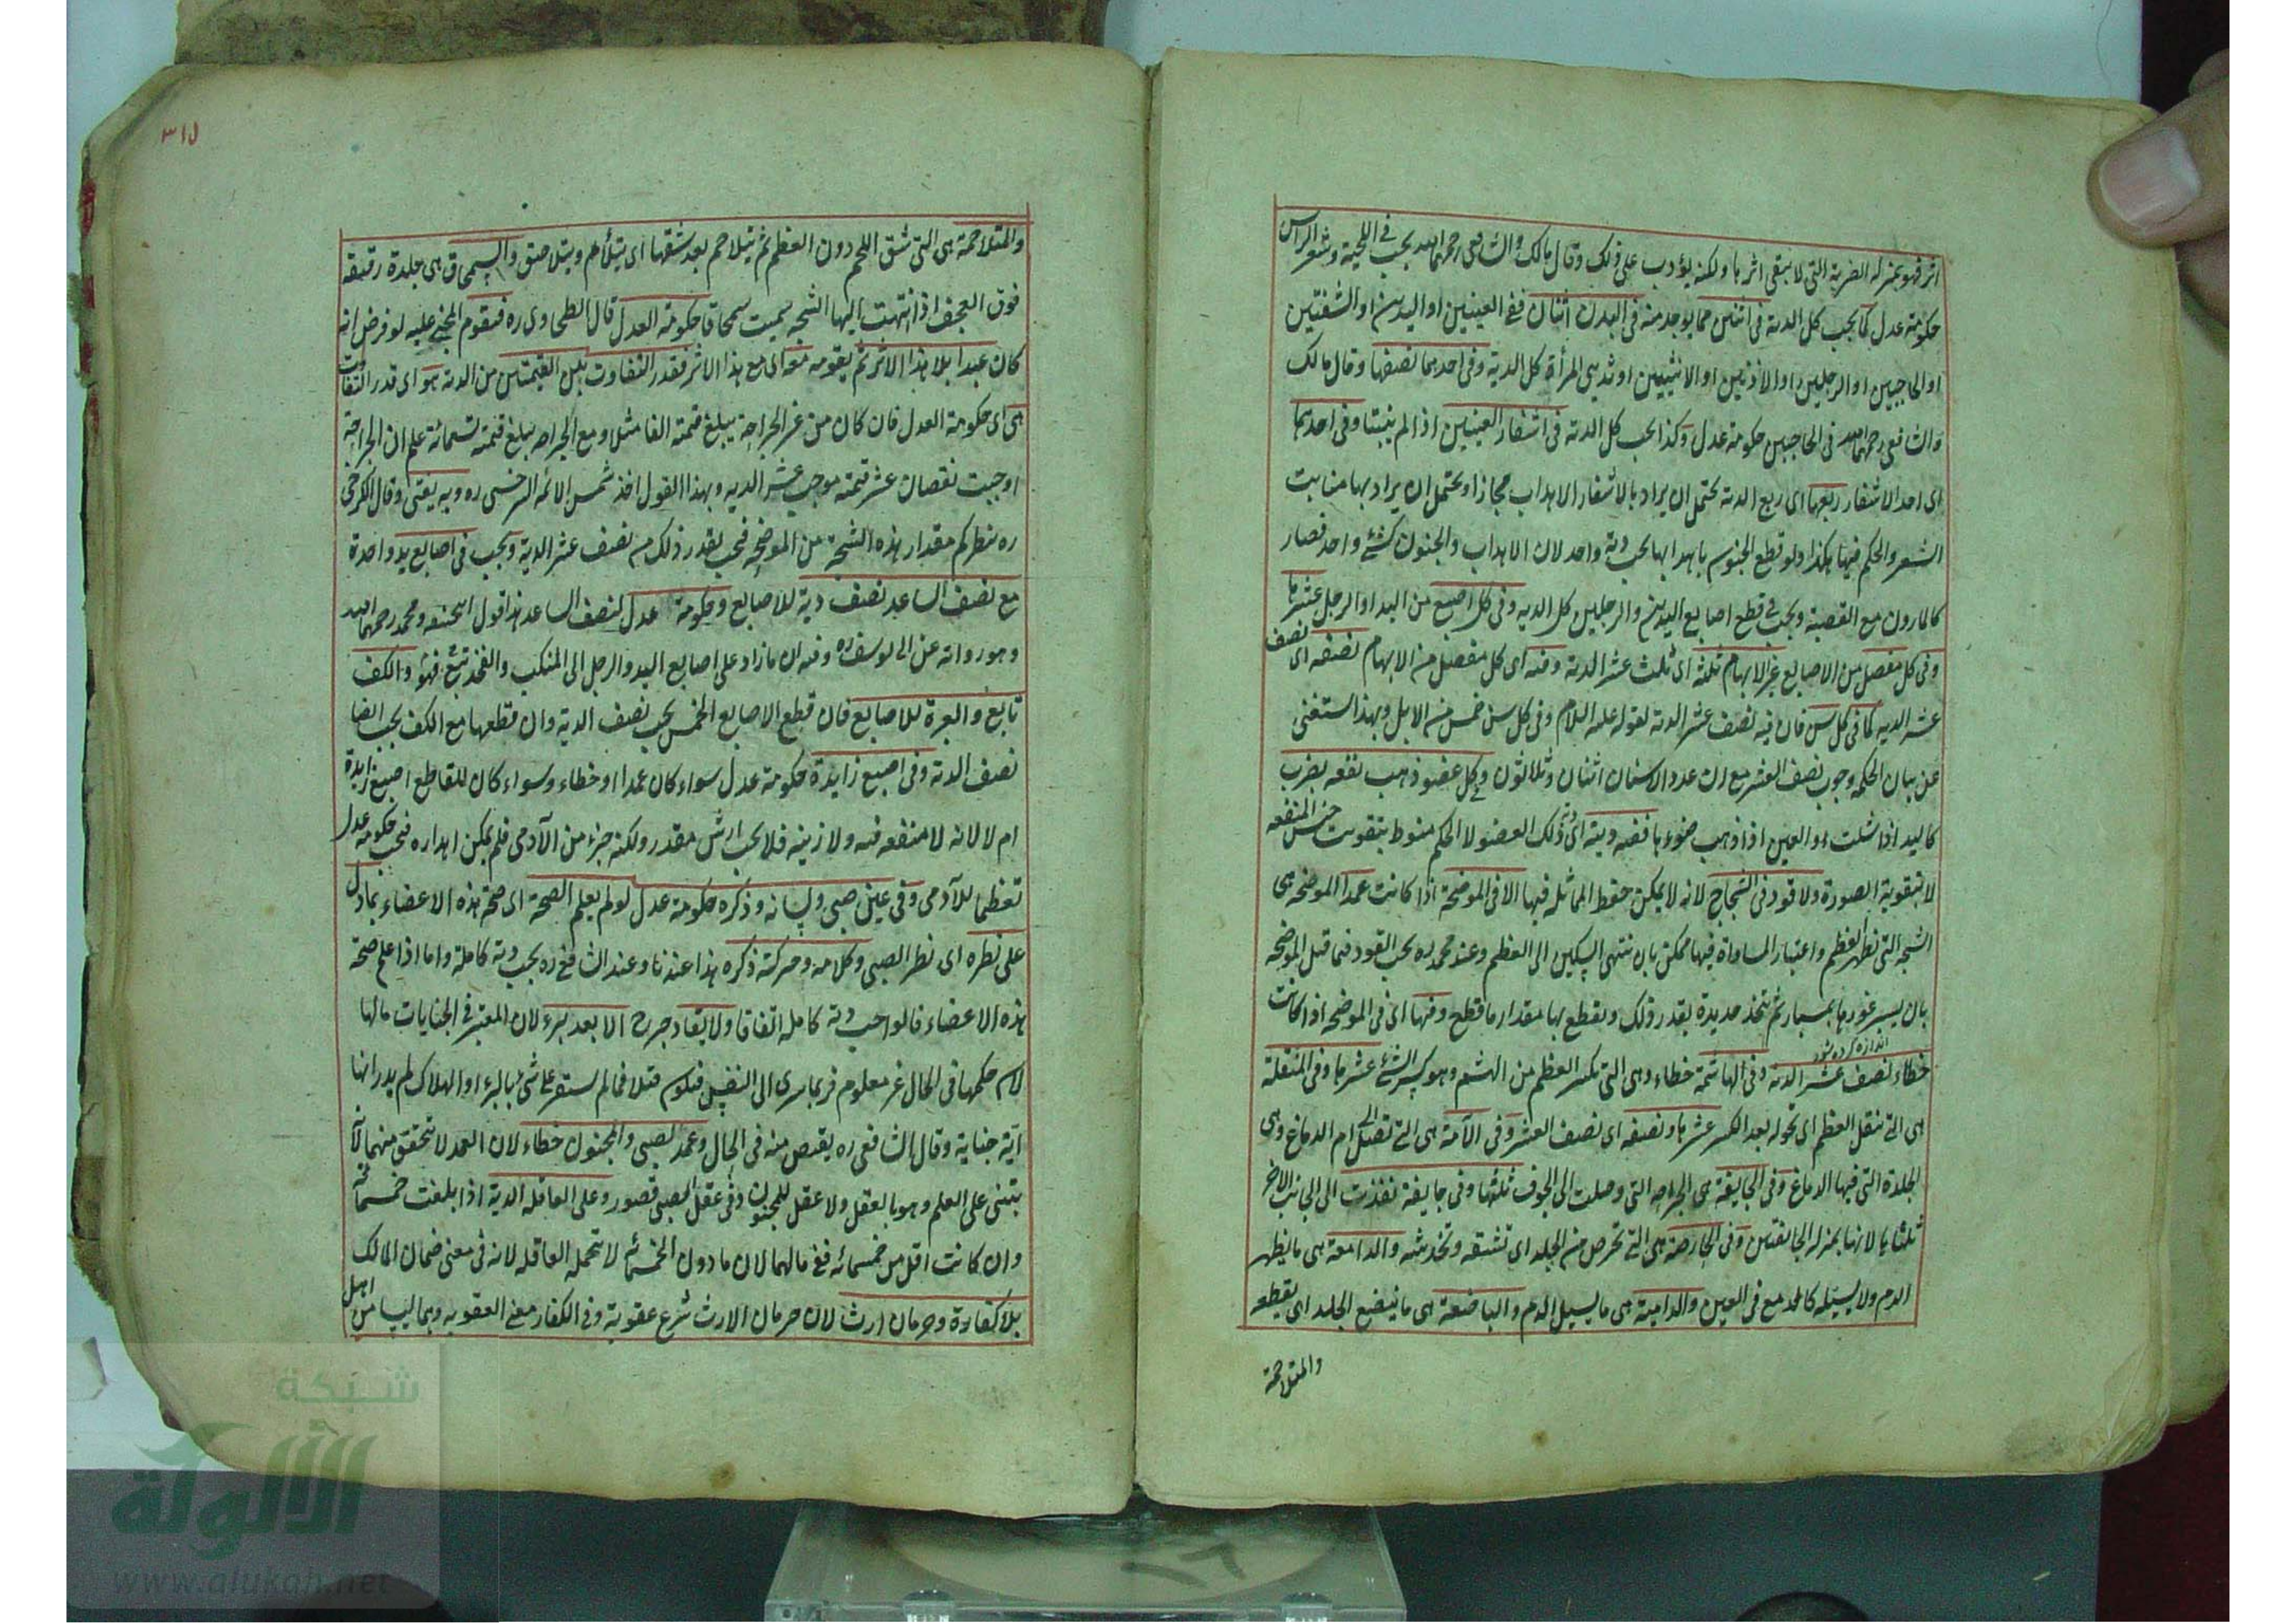 اثر فهو بمنزله الضربة التى لا يبقى اثرها ولكنه يؤدب على ذلك وقال مالك والشافعى رحمهما الله يجب فى اللحية وشعر الراس
حكومة عدل كما يجب كل الدية فى اثنين مما يوجد منه فى البدن اثنان ففى العينين او اليدين او الشفتين
او الحاجبين او الرجلين او الاذنين او الانثيين او ثديى المرأة كل الدية وفى احدهما نصفها وقال مالك
والشافعى رحمهما الله فى الحاجبين حكومة عدل وكذا يجب كل الدية فى اشفار العينين اذا لم ينبتا وفى احدهما
اى احد الاشفار ربعها اى ربع الدية يحتمل ان يراد بالاشفار الاهداب مجازا ويحتمل ان يراد بها منابت
الشعر والحكم فيها هكذا ولو قطع الجنوس باهدابها يجب دية واحد لان الاهداب والجنون كشئ واحد فصار
كالمارون مع القصبة ويجب فى قطع اصابع اليدين والرجلين كل الديه وفى كل اصبع من اليد او الرجل عشرها
وفى كل مفصل من الاصابع غير الابهام ثلثه اى ثلث عشر الدية وفيه اى كل مفصل من الابهام نصفه اى نصف
عشر الديه كما فى كل سن فان فيه نصف عشر الدية لقوله عليه السلام وفى كل سن خمس من الابل وبهذا استغنى
عن بيان الحكمه وجوب نصف العشر مع ان عدد الاسنان اثنان وثلاثون وكل عضو ذهب نفعه بضرب
كاليد اذا شلت او العين اذا ذهب ضوءها ففيه ديته اى دية ذلك العضو لا الحكم منوط بتفويت جنس المنفعه
لا بتفويت الصورة ولا قود فى الشجاج لانه لا يمكن حفظ المماثله فيها الا فى الموضحة اذا كانت عمدا الموضحه هى
الشجه التى تظهر العظم واعتبار المساواة فيها ممكن بان ينتهى السكين الى العظم وعند محمد ره يجب القود فيما قبل الموضحه
بان يسبر غورها بمسبار ثم يتخذ حديدة بقدر ذلك ويقطع بها مقدار ما قطع وفيها اى فى الموضحه اذا كانت
اندازه كرده شود
خطاء نصف عشر الدية وفى الهاشمة خطاء وهى التى تكسر العظم من الهشم وهو كسر الشئ عشرها وفى المنقلة
هى التى تنقل العظم اى تحوله بعد الكسر عشرها ونصفه اى نصف العشر وفى الآمة هى التى تصل الى ام الدماغ وهى
الجلدة التى فيها الدماغ وفى الجايفة هى الجراحه التى وصلت الى الجوف ثلثها وفى جايفة نفذت الى الجانب الاخر
ثلثاها لانها بمنزله الجائفتين وفى الحارصة هى التى تحرص من الجلد اى تشقه وتخدشه والدامعة هى ما يظهر
الدم ولا يسيله كالدمع فى العين والدامية هى ما يسيل الدم والباضعة هى ما يبضع الجلد اى يقطعه
والمتلاحمة
٣١٥
والمتلاحمة هى التى تشق اللحم دون العظم ثم يتلاحم بعد شقها اى يتلأم ويتلاصق والسمحاق هى جلدة رقيقه
فوق العجف اذا انتهت اليها الشجه سميت سمحاقا حكومة العدل قال الطحاوى ره فيقوم المجنى عليه لو فرض انه
كان عبدا بلا هذا الاثر ثم يقومه معه اى مع هذا الاثر فقدر التفاوت بين القيمتين من الدية هو اى قدر التفاوت
هى اى حكومة العدل فان كان من غير الجراحة يبلغ قيمته الفا مثلا ومع الجراحه يبلغ قيمته تسمائة علم ان الجراحة
اوجبت نقصان عشر قيمته موجب عشر الديه وبهذا القول اخذ شمس الائمه السرخسى ره وبه يفتى وقال الكرخى
ره ينظر كم مقدار هذه الشجة من الموضحه فيجب بقدر ذلك من نصف عشر الدية ويجب فى اصابع يد واحدة
مع نصف الساعد نصف دية للاصابع وحكومة عدل لنصف الساعد هذا قول ابيحنيفه ومحمد رحمهما الله
وهو رواية عن ابى يوسف ره وفيه ان ما زاد على اصابع اليد والرجل الى المنكب والفخذ تبع فهو والكف
تابع والعبرة للاصابع فان قطع الاصابع الخمس يجب نصف الدية وان قطعها مع الكف يجب ايضا
نصف الدية وفى اصبع زايدة حكومة عدل سواء كان عمدا او خطاء وسواء كان للقاطع اصبع زايدة
ام لا لانه لا منفعه فيه ولا زينه فلا يجب ارش مقدر ولكنه جزء من الآدمى فلم يمكن اهداره فيجب حكومه عدل
تعظيما للآدمى وفى عين صبى ولسانه وذكره حكومة عدل لو لم يعلم الصحة اى صحة هذه الاعضاء بما دل
على نظره اى نظر الصبى وكلامه وحركة ذكره هذا عندنا وعند الشافعى ره يجب دية كاملة واما اذا علم صحة
هذه الاعضاء فالواجب دية كامله اتفاقا ولا يقاد جرح الا بعد برء لان المعتبر فى الجنايات مالها
لان حكمها فى الحال غير معلوم فربما سرى الى النفس فيكون قتلا فما لم يستقر على شئ بالبرء او الهلاك لم يدر انها
اية جناية وقال الشافعى ره يقتص منه فى الحال وعمد الصبى والمجنون خطاء لان العمد لا يتحقق منهما لانه
يبتنى على العلم وهو بالعقل ولا عقل للمجنون وفى عقل الصبى قصور وعلى العاقله الدية اذا بلغت خمسمائة
وان كانت اقل من خمسمائه ففى مالهما لان ما دون الخمسمائه لا تتحمله العاقله لانه فى معنى ضمان المالك
بلا كفارة وحرمان ارث لان حرمان الارث شرع عقوبة وفى الكفارة معنى العقوبه وهما ليسا من اهل
شبكة
الألوكة
www.alukah.net